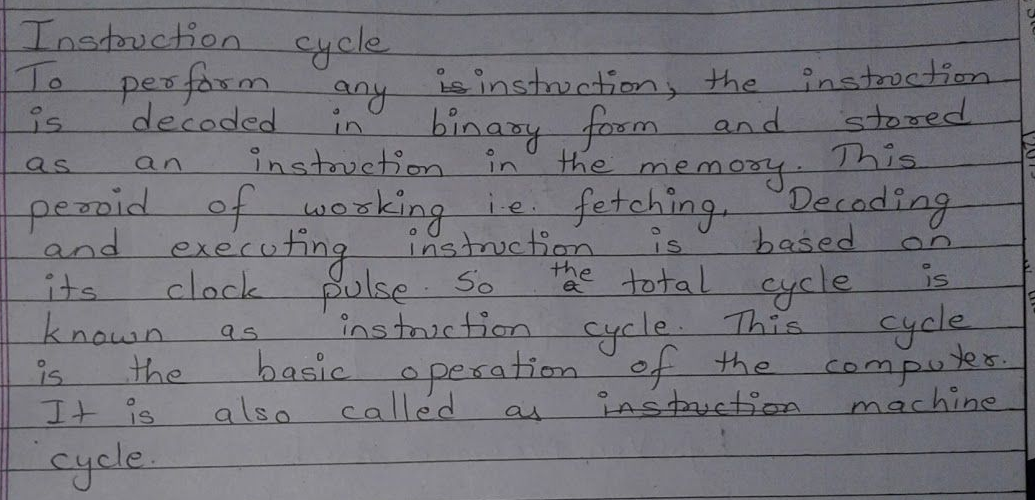 Instruction cycle
To perform any is instruction, the instruction
is decoded in binary form and stored
as an instruction in the memory. This
peroid of working i.e. fetching, Decoding
and executing instruction is based on
its clock pulse. So the a total cycle is
known as instruction cycle. This cycle
is the basic operation of the computer.
It is also called as instruction machine
cycle.